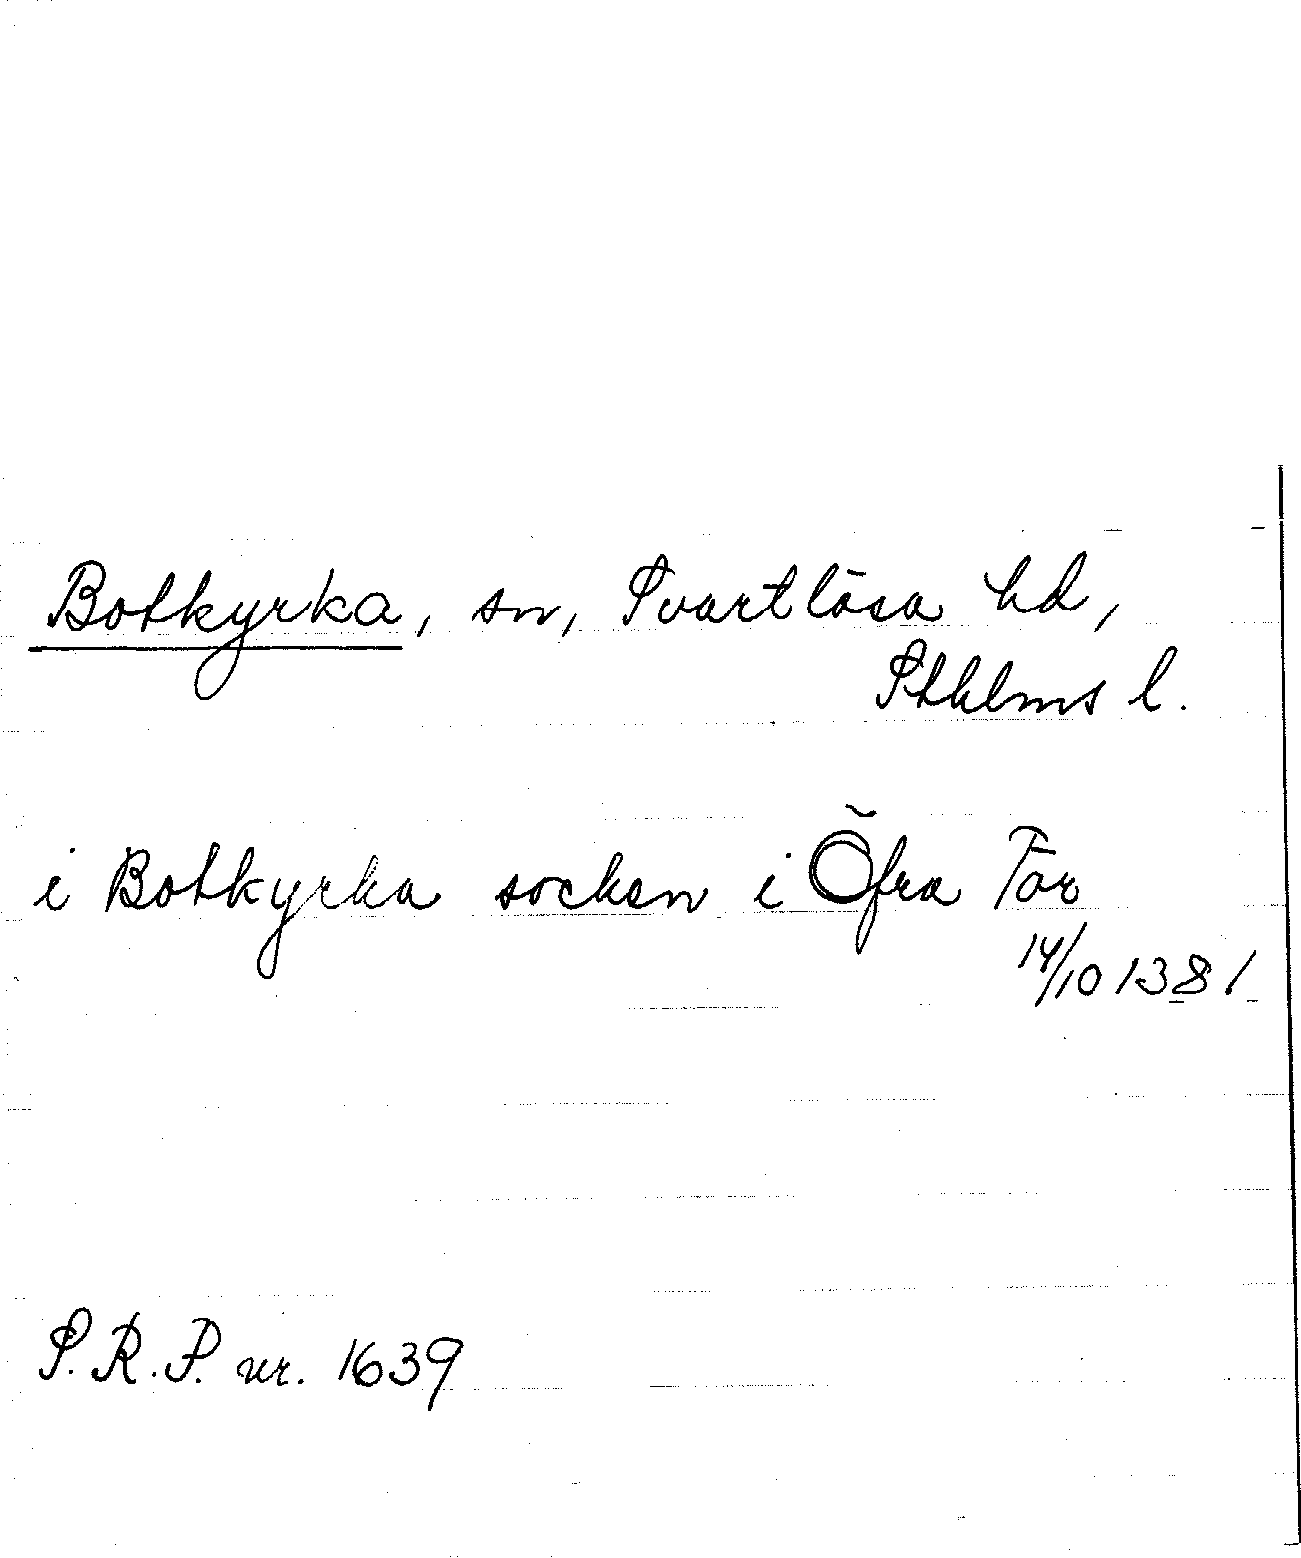 Botkyrka, sn, Svartlösa hd,
Sthlms l.
i Botkyrka socken i Öfra Tör
14/10 1381
S. R. P. nr. 1639